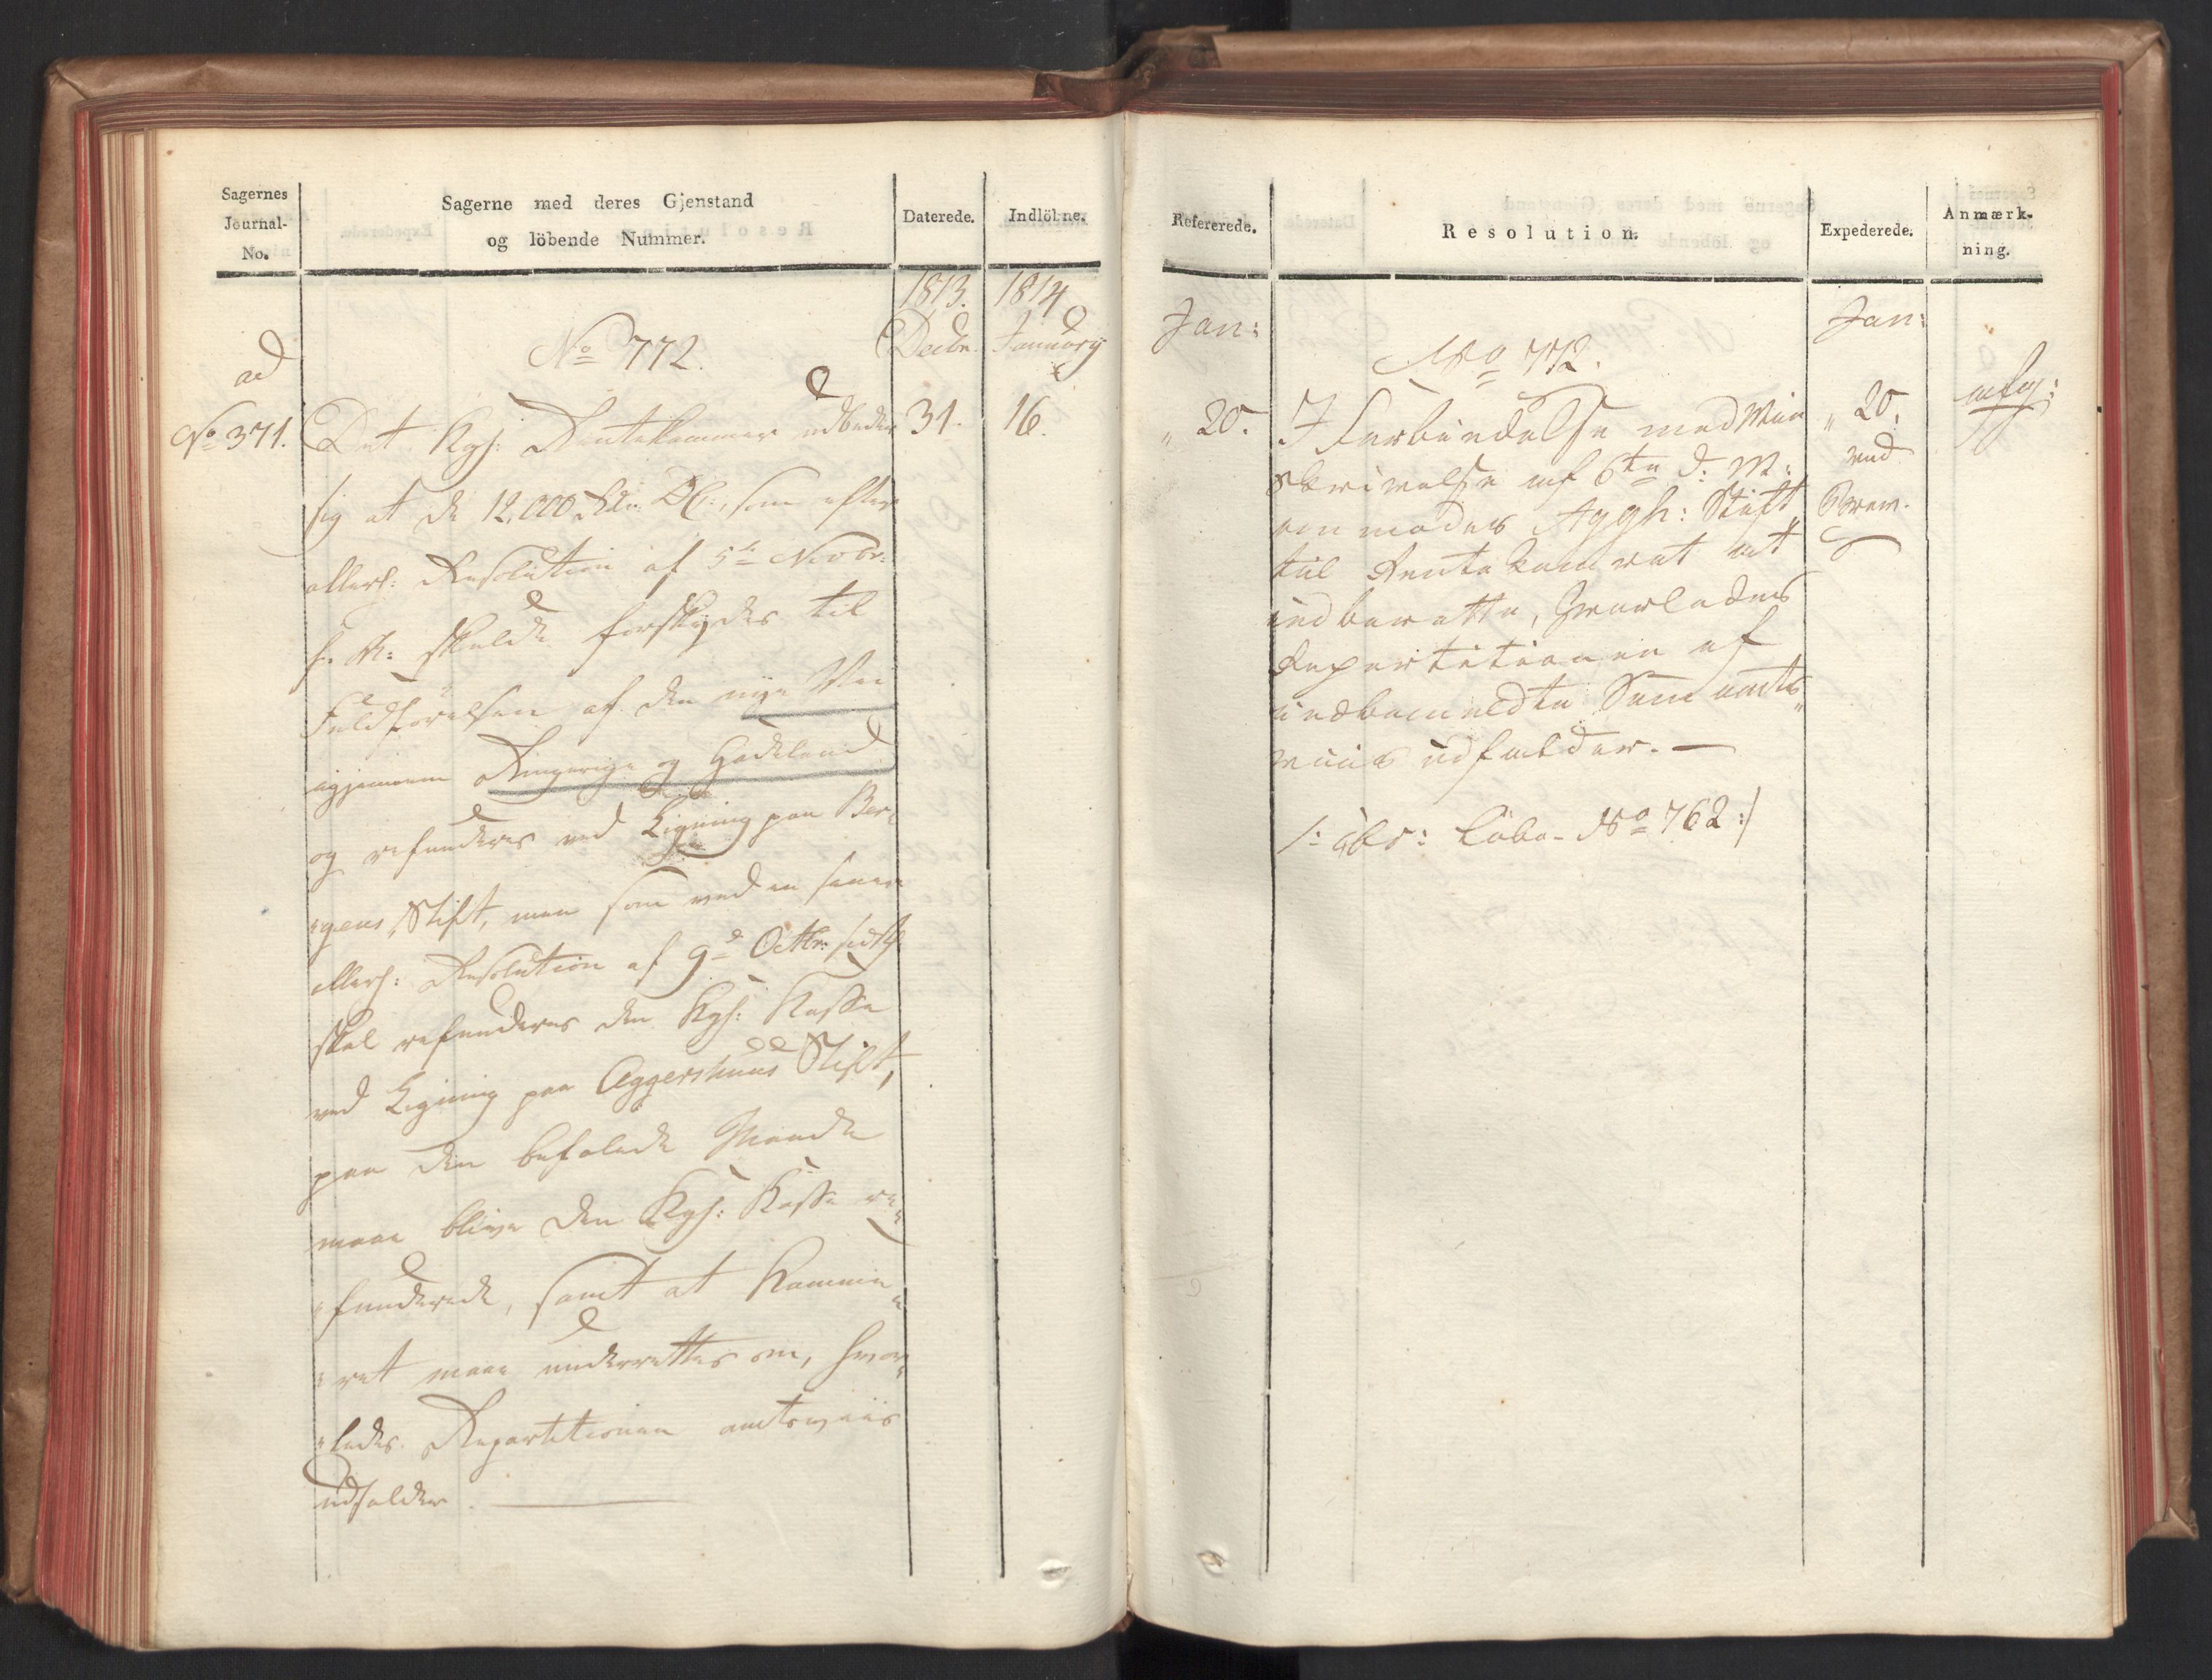 Sagernes
Journal-
No.
Sagerne med deres Gjenstand
og löbende Nummer.
Daterede.
Indlöbne.
1813.
1814
Decbr.
January
ad
No 371.
No 772.
31.
16.
Det Kgl: Rentekammer udbeder
sig at de 12,000 Rdr. DC:, som efter
allerh: Resolution af 5te Novbr:
f. A: skulde forskydes til
Fuldförelsen af den nye Vei
igjennem Ringerige og Hadeland
og refunderes ved Ligning paa Ber-
gens Stift, men som ved en senere
allerh: Resolution af 9d Octbr: sidstl
skal refunderes den Kgl: Kasse
ved Ligning paa Aggershuus Stift,
paa den befalede Maade
maae blive den Kgl: Kasse re-
funderede, samt at Kamme-
ret maae underrettes om, hvor-
ledes Repartitionen amtsviis
udfalder.
Refererede.
Resolution.
Expederede.
Anmærk-
ning.
Jan:
Jan:
No 772.
" 20.
I Forbindelse med Min
Skrivelse af 6te d: M:
anmodes Aggh: Stift
til Rentekamret at
indberette, hvorledes
Repartitionen af
indbemeldte Sum amts-
viis udfalder. —
/: cfr: Löbe- No 762 :/
" 20.
ved
Brev.